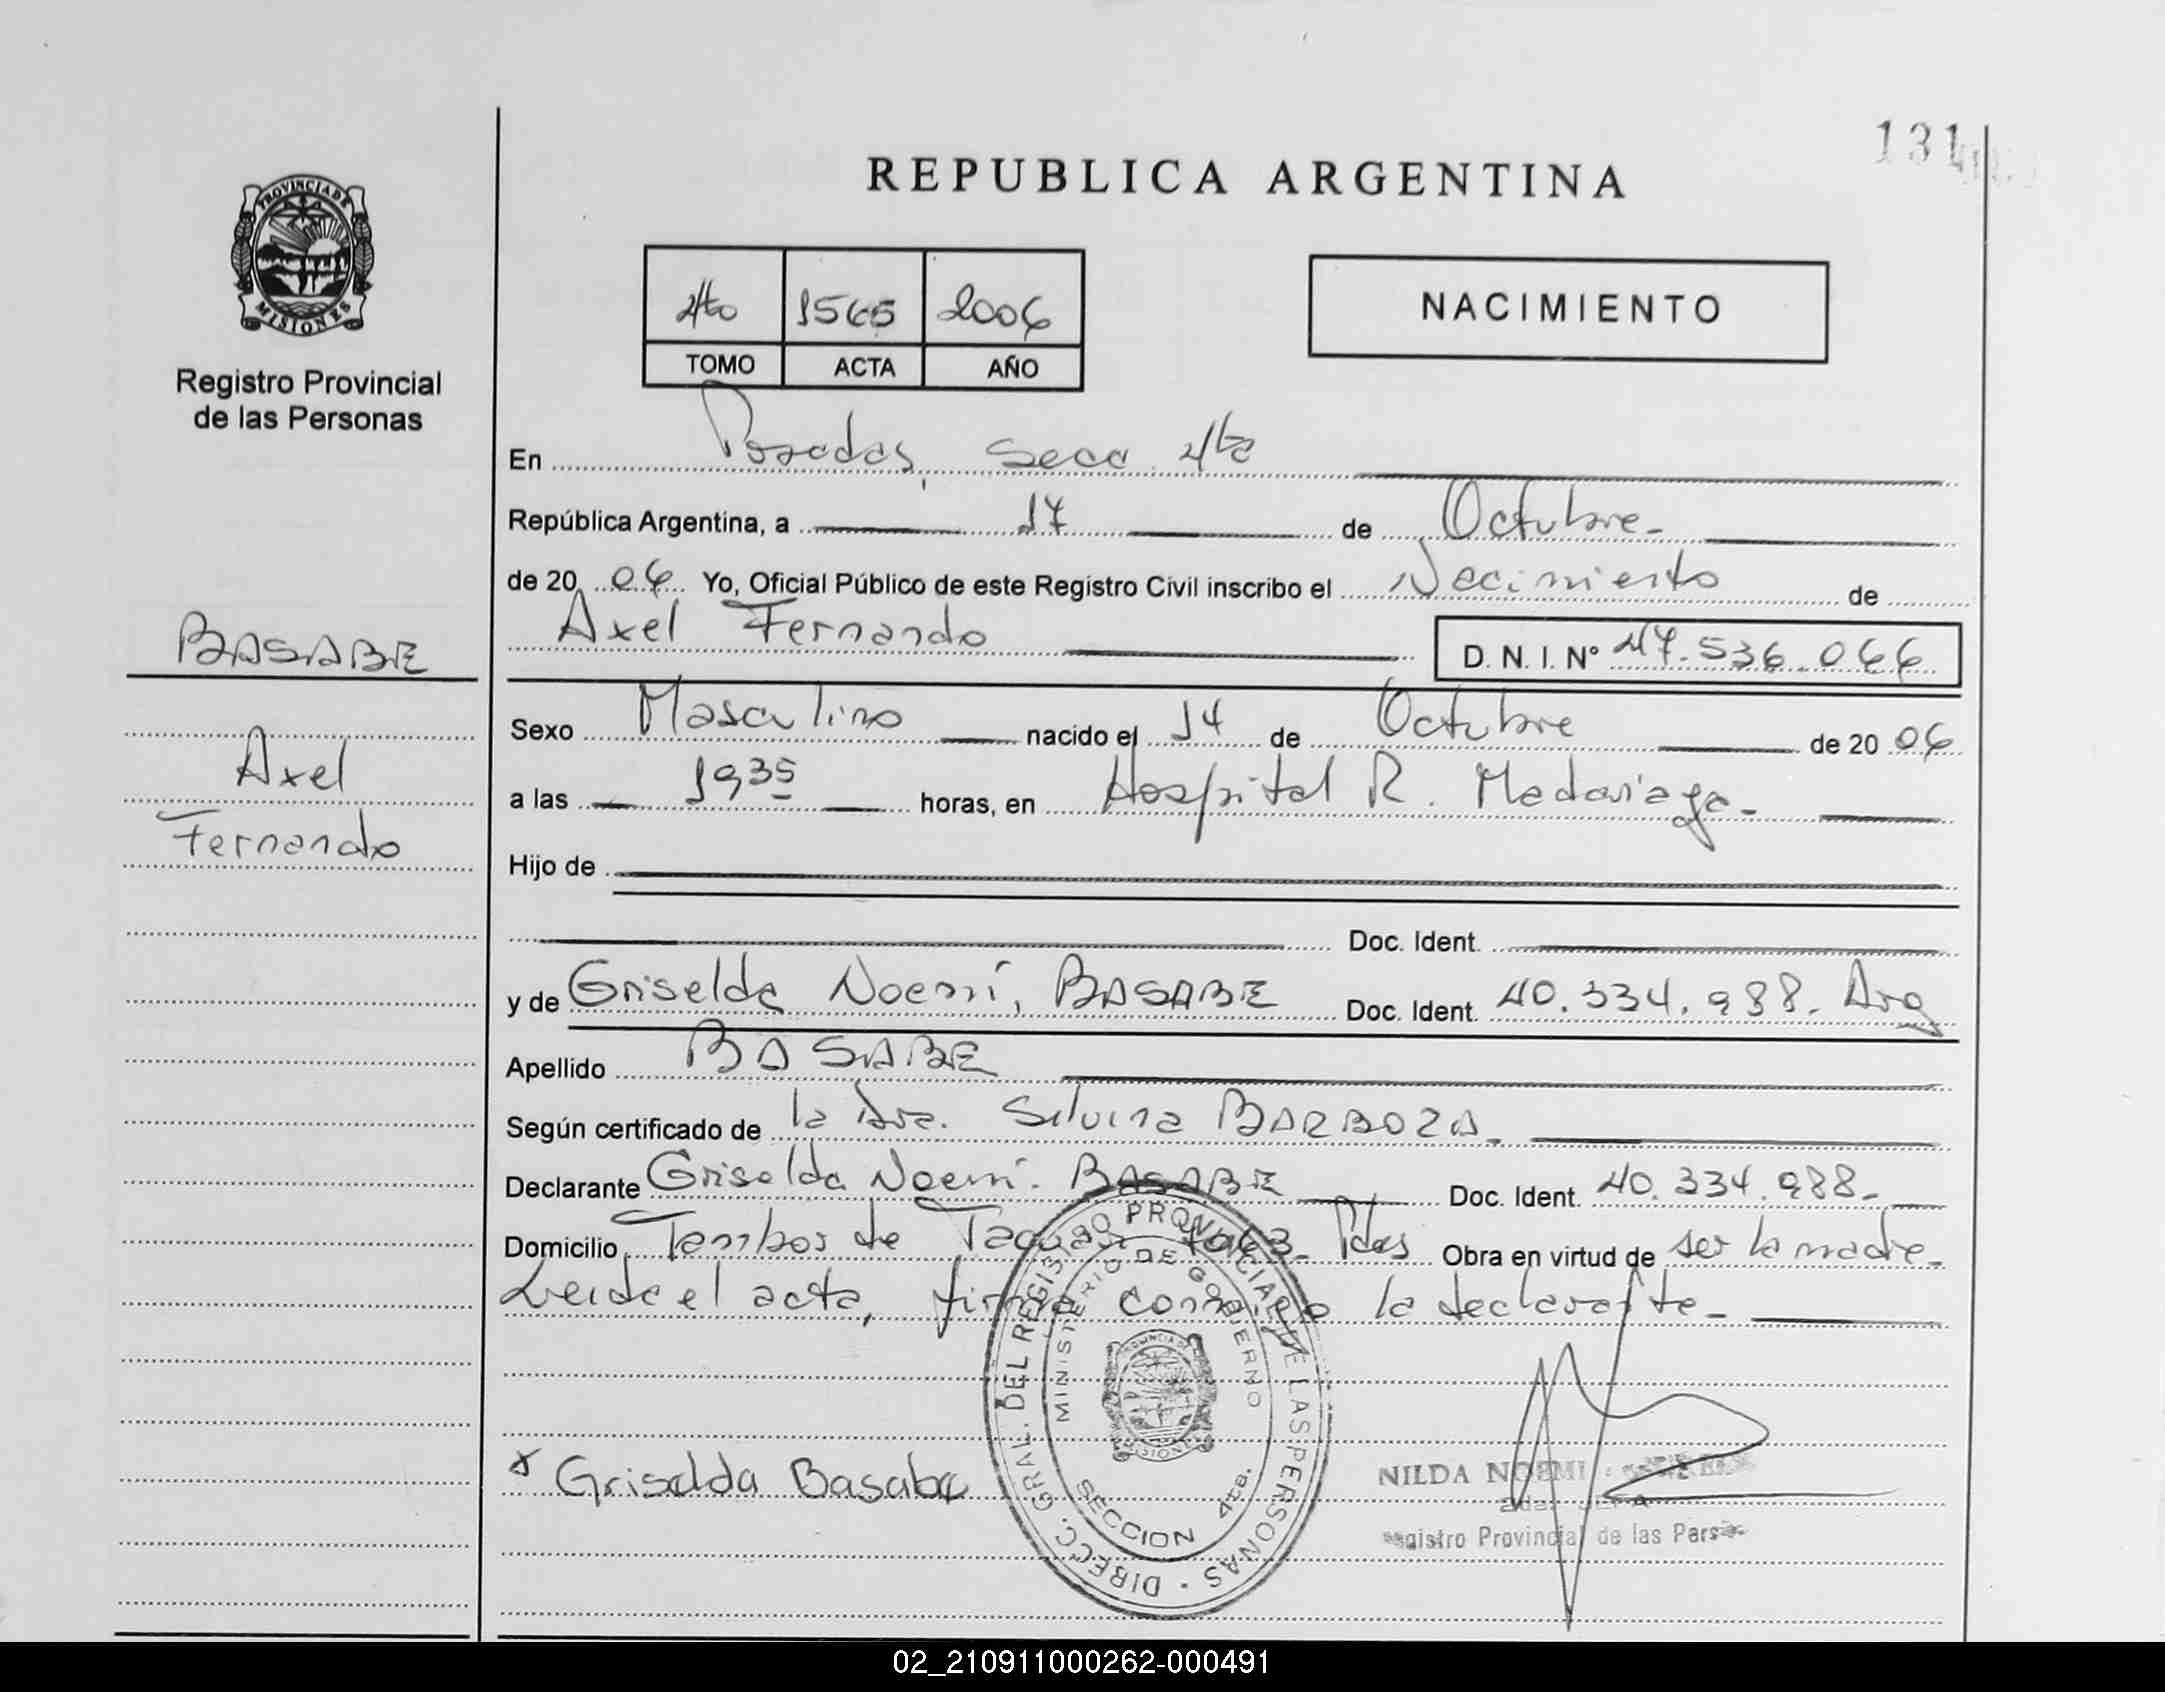 131
REPUBLICA ARGENTINA
PROVINCIA DE
MISIONES
Registro Provincial
de las Personas
4to 1565 2006
TOMO ACTA AÑO
NACIMIENTO
En Posadas, Secc 4ta
República Argentina, a 17 de Octubre
de 20 06 Yo, Oficial Público de este Registro Civil inscribo el Nacimiento de
Axel Fernando D. N. I. Nº 47.536.066
BASABE
Axel
Fernando
Sexo Masculino nacido el 14 de Octubre de 20 06
a las 1935 horas, en Hospital R. Madariaga
Hijo de
Doc. Ident.
y de Griselda Noemí, BASABE Doc. Ident. 40.334.988. Arg
Apellido BASABE
Según certificado de la Dra. Silvina BARBOZA
Declarante Griselda Noemí. BASABE Doc. Ident. 40.334.988
Domicilio Tambor de Tacuarí Pdas Obra en virtud de ser la madre
Leida el acta, firma conmigo la declarante
x Griselda Basabe
DIRECC. GRAL. DEL REGISTRO PROVINCIAL DE LAS PERSONAS
MINISTERIO DE GOBIERNO
MISIONES
SECCION 4ta.
NILDA NOEMI
Registro Provincial de las Pers
02_210911000262-000491